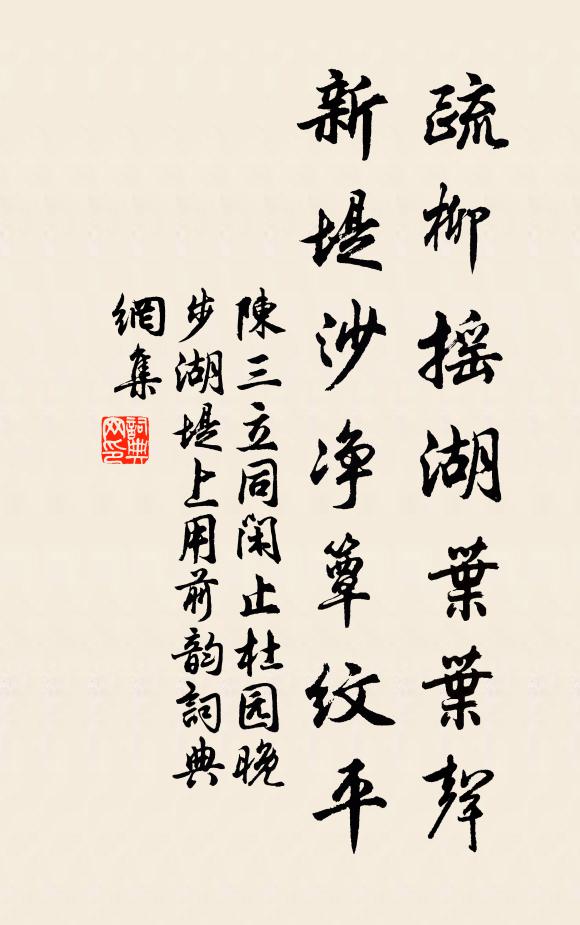 疏柳摇湖葉葉聲
新堤沙净簟紋平
陳三立同閑止杜园晚
步湖堤上用前韵詞典
網集
詞典
网印